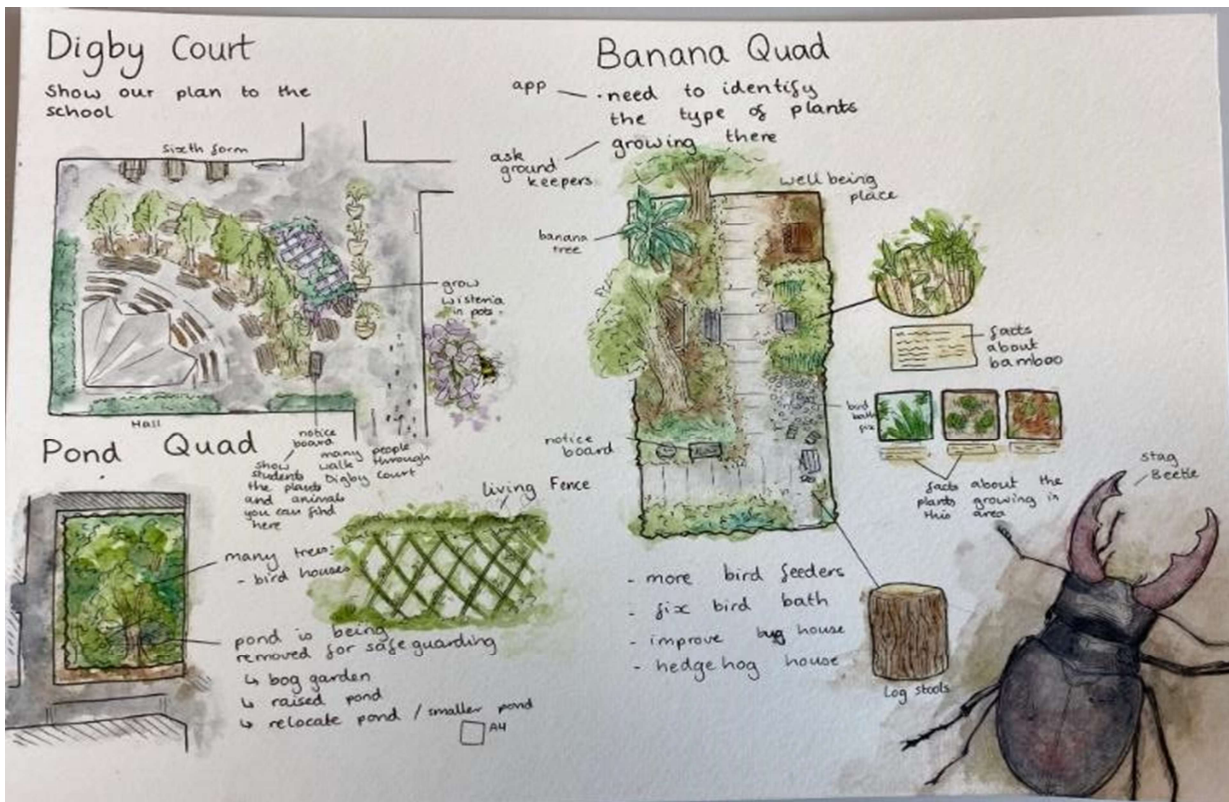 Digby Court
Show our plan to the
school
Sixth form
grow
wisteria
in pots
Hall
notice
board
show
students
the plants
and animals
you can find
here
many people
walk through
Digby Court
Pond Quad
many trees:
- bird houses
living Fence
pond is being
removed for safeguarding
↳ bog garden
↳ raised pond
↳ relocate pond / smaller pond
A4
Banana Quad
app
· need to identify
the type of plants
growing there
ask
ground
keepers
well being
place
banana
tree
facts
about
bamboo
bird
bath
fix
notice
board
facts about the
plants growing in
this area
stag
Beetle
- more bird feeders
- fix bird bath
- improve bug house
- hedgehog house
Log stools